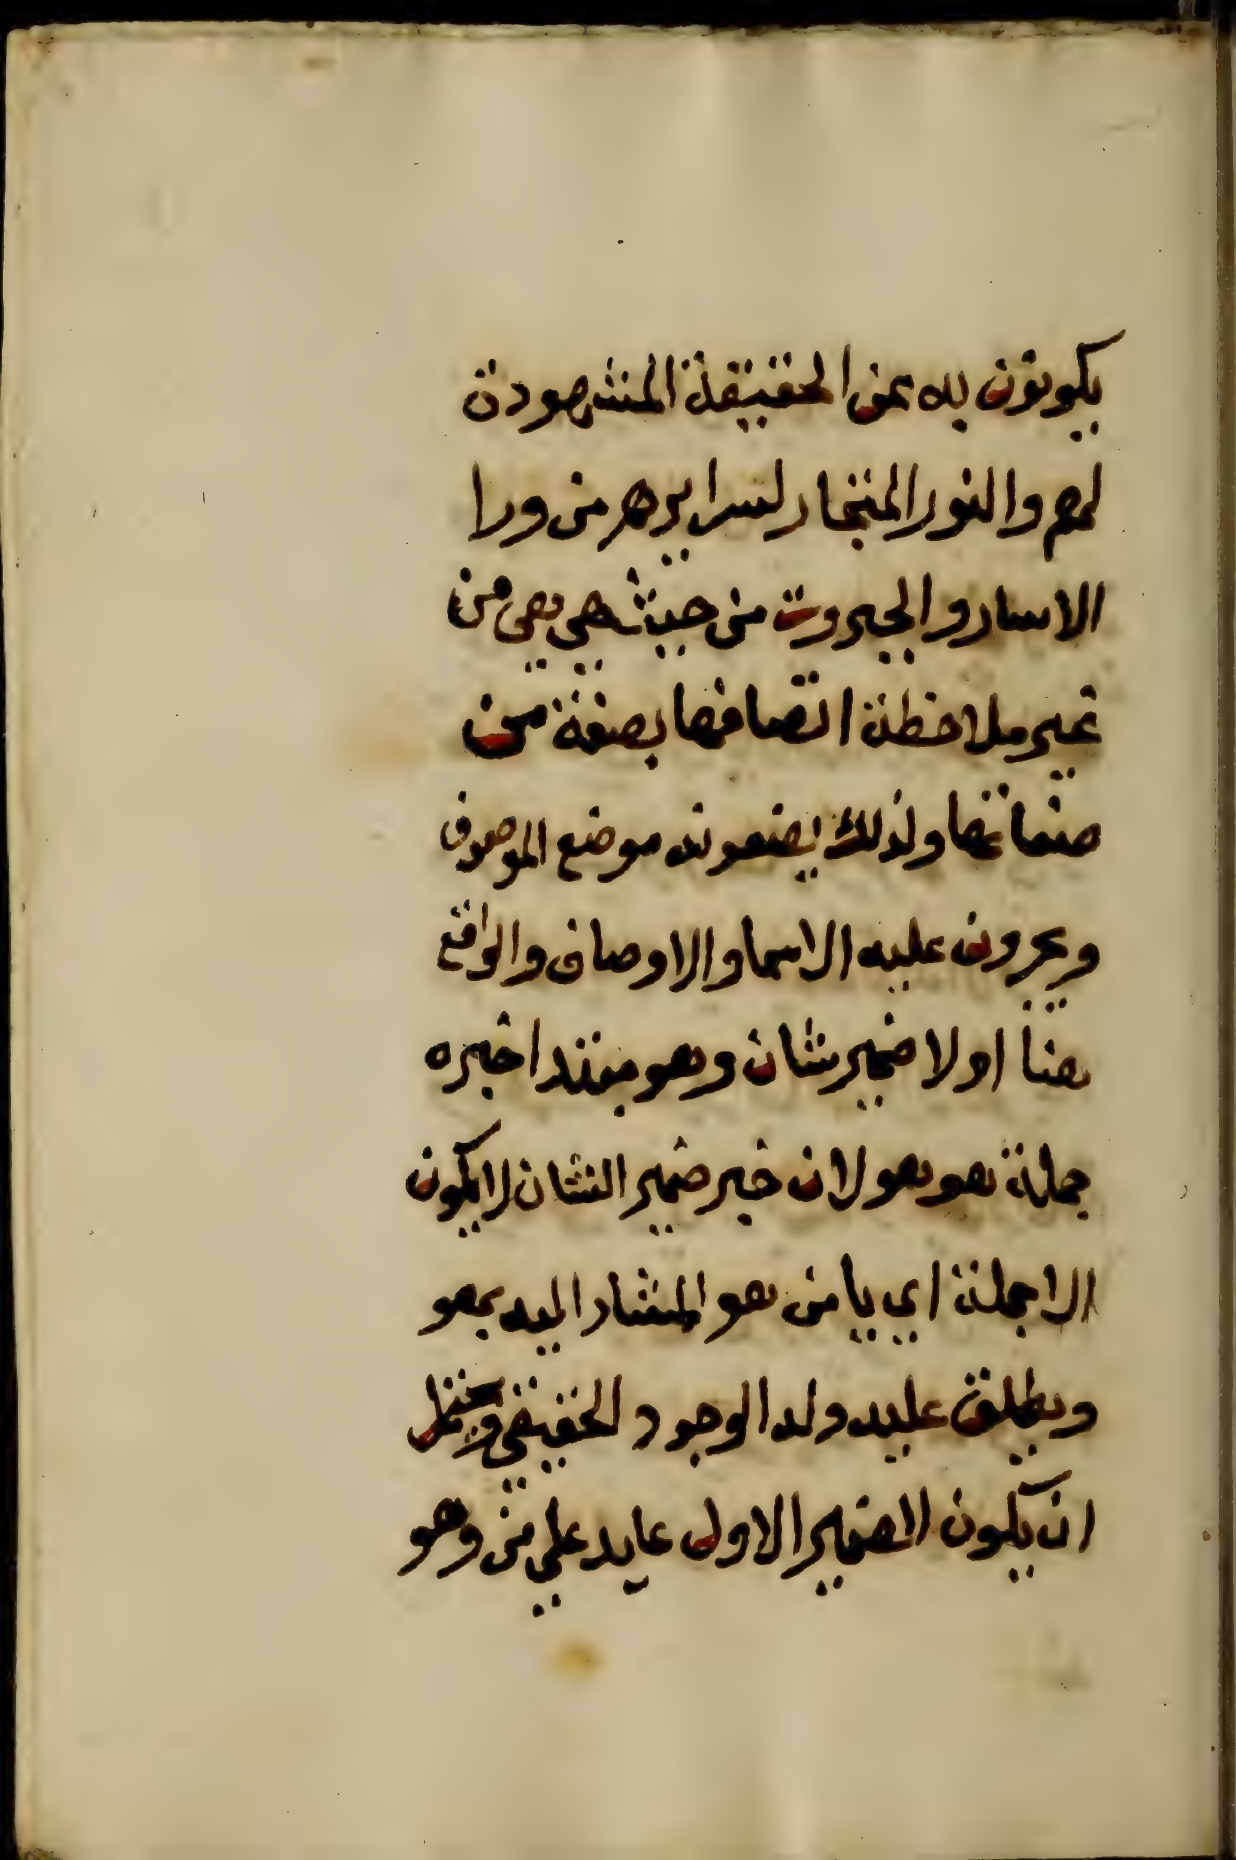 يكونون به عن الحقيقة المشهودة
لهم والنور المتجا لسرايرهم من ورا
الاستار والجبروت من حيث هي هي من
غير ملاحظة اتصافها بصفة من
صفاتها ولذلك يضعونه موضع الموصوف
ويجرون عليه الاسما والاوصاف والواقع
هنا اولا ضمير شان وهو مبتدا خبره
جملة هو هو لان خبر ضمير الشان لا يكون
الا جملة اي يا من هو المشار اليه بهو
ويطلق عليه وله الوجود الحقيقي ويحتمل
ان يكون الضمير الاول عايد علي من وهو